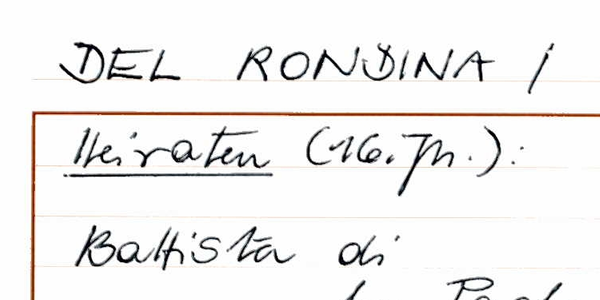 DEL RONDINA /
Heiraten (16. Jh.):
Battista di